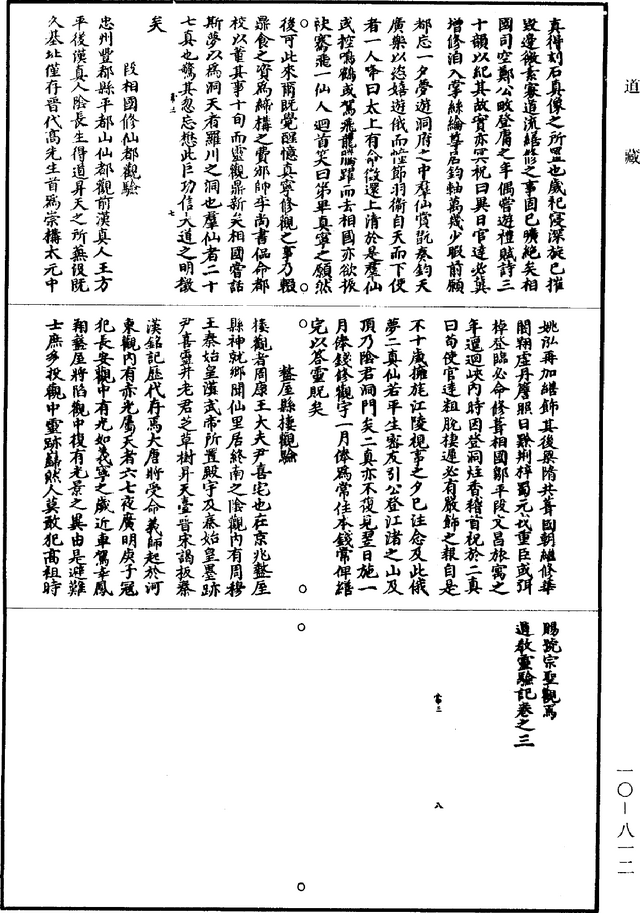 道藏
真禪刻石真像之所𥁞也歲祀寖深旋已摧
毀邊徼素塞道流繕修之事固已曠絕矣相
國司空鄭公畋登庸之年偶嘗遊禮賦詩三
十韻以紀其故實亦冥祝曰異日官達必冀
增修洎入掌絲綸尊居鈞軸萬幾少暇前願
都忘一夕夢遊洞府之中群仙賞翫奏鈞天
廣樂以恣嬉遊俄而幢節羽衞自天而下使
者一人啼曰太上有命徵還上清於是羣仙
或控鳴鶴或駕飛龍騰躍而去相國亦欲扳
袂騫飛一仙人迴首笑曰第畢真寧之願然
後可此來爾既覺醒憶真寧修觀之事乃輟
鼎食之資為締構之費邠帥李尚書偘命都
校以董其事十旬而靈觀鼎新矣相國嘗話
斯夢以為洞天者羅川之洞也羣仙者二十
七真也驚其忽忘懋此巨功信大道之明徵
矣
段相國修仙都觀驗
忠州豐都縣平都山仙都觀前漢真人王方
平後漢真人陰長生得道昇天之所蕪設既
久基址僅存晉代高先生首為崇構太元中
常三 七
姚泓再加繕飾其後舉隋共葺國朝繼修華
閣翔虛丹簷照日黔荊梓蜀元戎重臣或弭
棹登臨必命修葺相國鄒平段文昌旅寓之
年邅迴峽內時因登洞炷香稽首祝於二真
曰苟使官達粗脫棲遲必有嚴飾之報自是
不十歲擁旄江陵視事之夕已注念及此俄
夢二真仙若平生密友引公登江渚之山及
頂乃陰君洞門矣二真亦不復見翌日施一
月俸錢修觀宇一月俸為常住本錢常俾繕
完以答靈貺矣
盩厔縣樓觀驗
樓觀者周康王大夫尹喜宅也在京兆盩厔
縣神就鄉聞仙里居終南之陰觀內有周穆
王秦始皇漢武帝所置殿宇及秦始皇墨跡
尹喜靈井老君芝草樹昇天臺晉宋謁板秦
漢銘記歷代存焉大唐將受命義師起於河
東觀內有赤光屬天者六七夜廣明庚子寇
犯長安觀中有光如義寧之歲近車駕幸鳳
翔盩厔將陷觀中復有光景之異由是避難
士庶多投觀中靈跡巋然人莫敢犯高祖時
賜號宗聖觀焉
道教靈驗記卷之三
常三 八
一〇-八一二